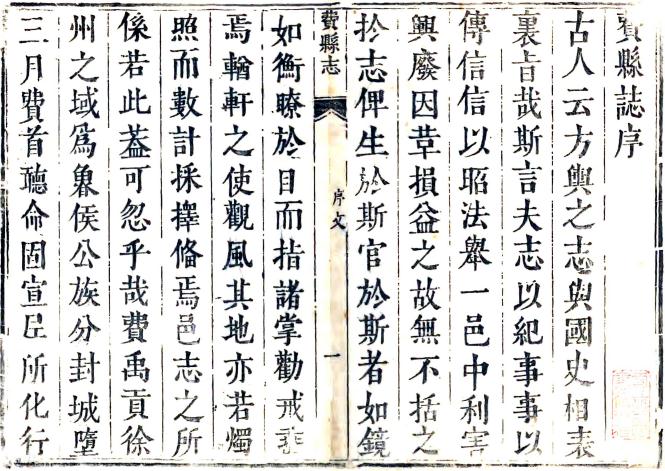 費縣誌序
古人云方輿之志與國史相表
裏旨哉斯言夫志以紀事事以
傳信信以昭法舉一邑中利害
興廢因革損益之故無不括之
扵志俾生於斯官於斯者如鏡
費縣志
序文
一
如衡瞭於目而指諸掌勸戒
焉輶軒之使觀風其地亦若燭
照而數計採擇俻焉邑志之所
係若此葢可忽乎哉費禹貢徐
州之域爲魯侯公族分封城墮
三月費首聽命固宣尼所化行